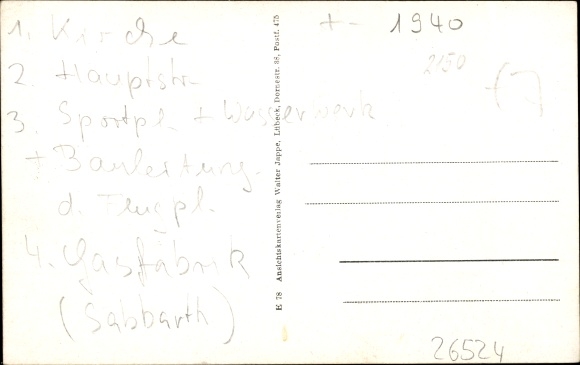 1. Kirche
2. Hauptstr.
3. Sportpl. + Wasserwerk
+ Bauleitung
d. Flugpl.
4. Gasfabrik
(Sabbarth)
K 78 Ansichtskartenverlag Walter Jappe, Lübeck, Dornestr. 38, Postf. 475
+- 1940
2150
26524